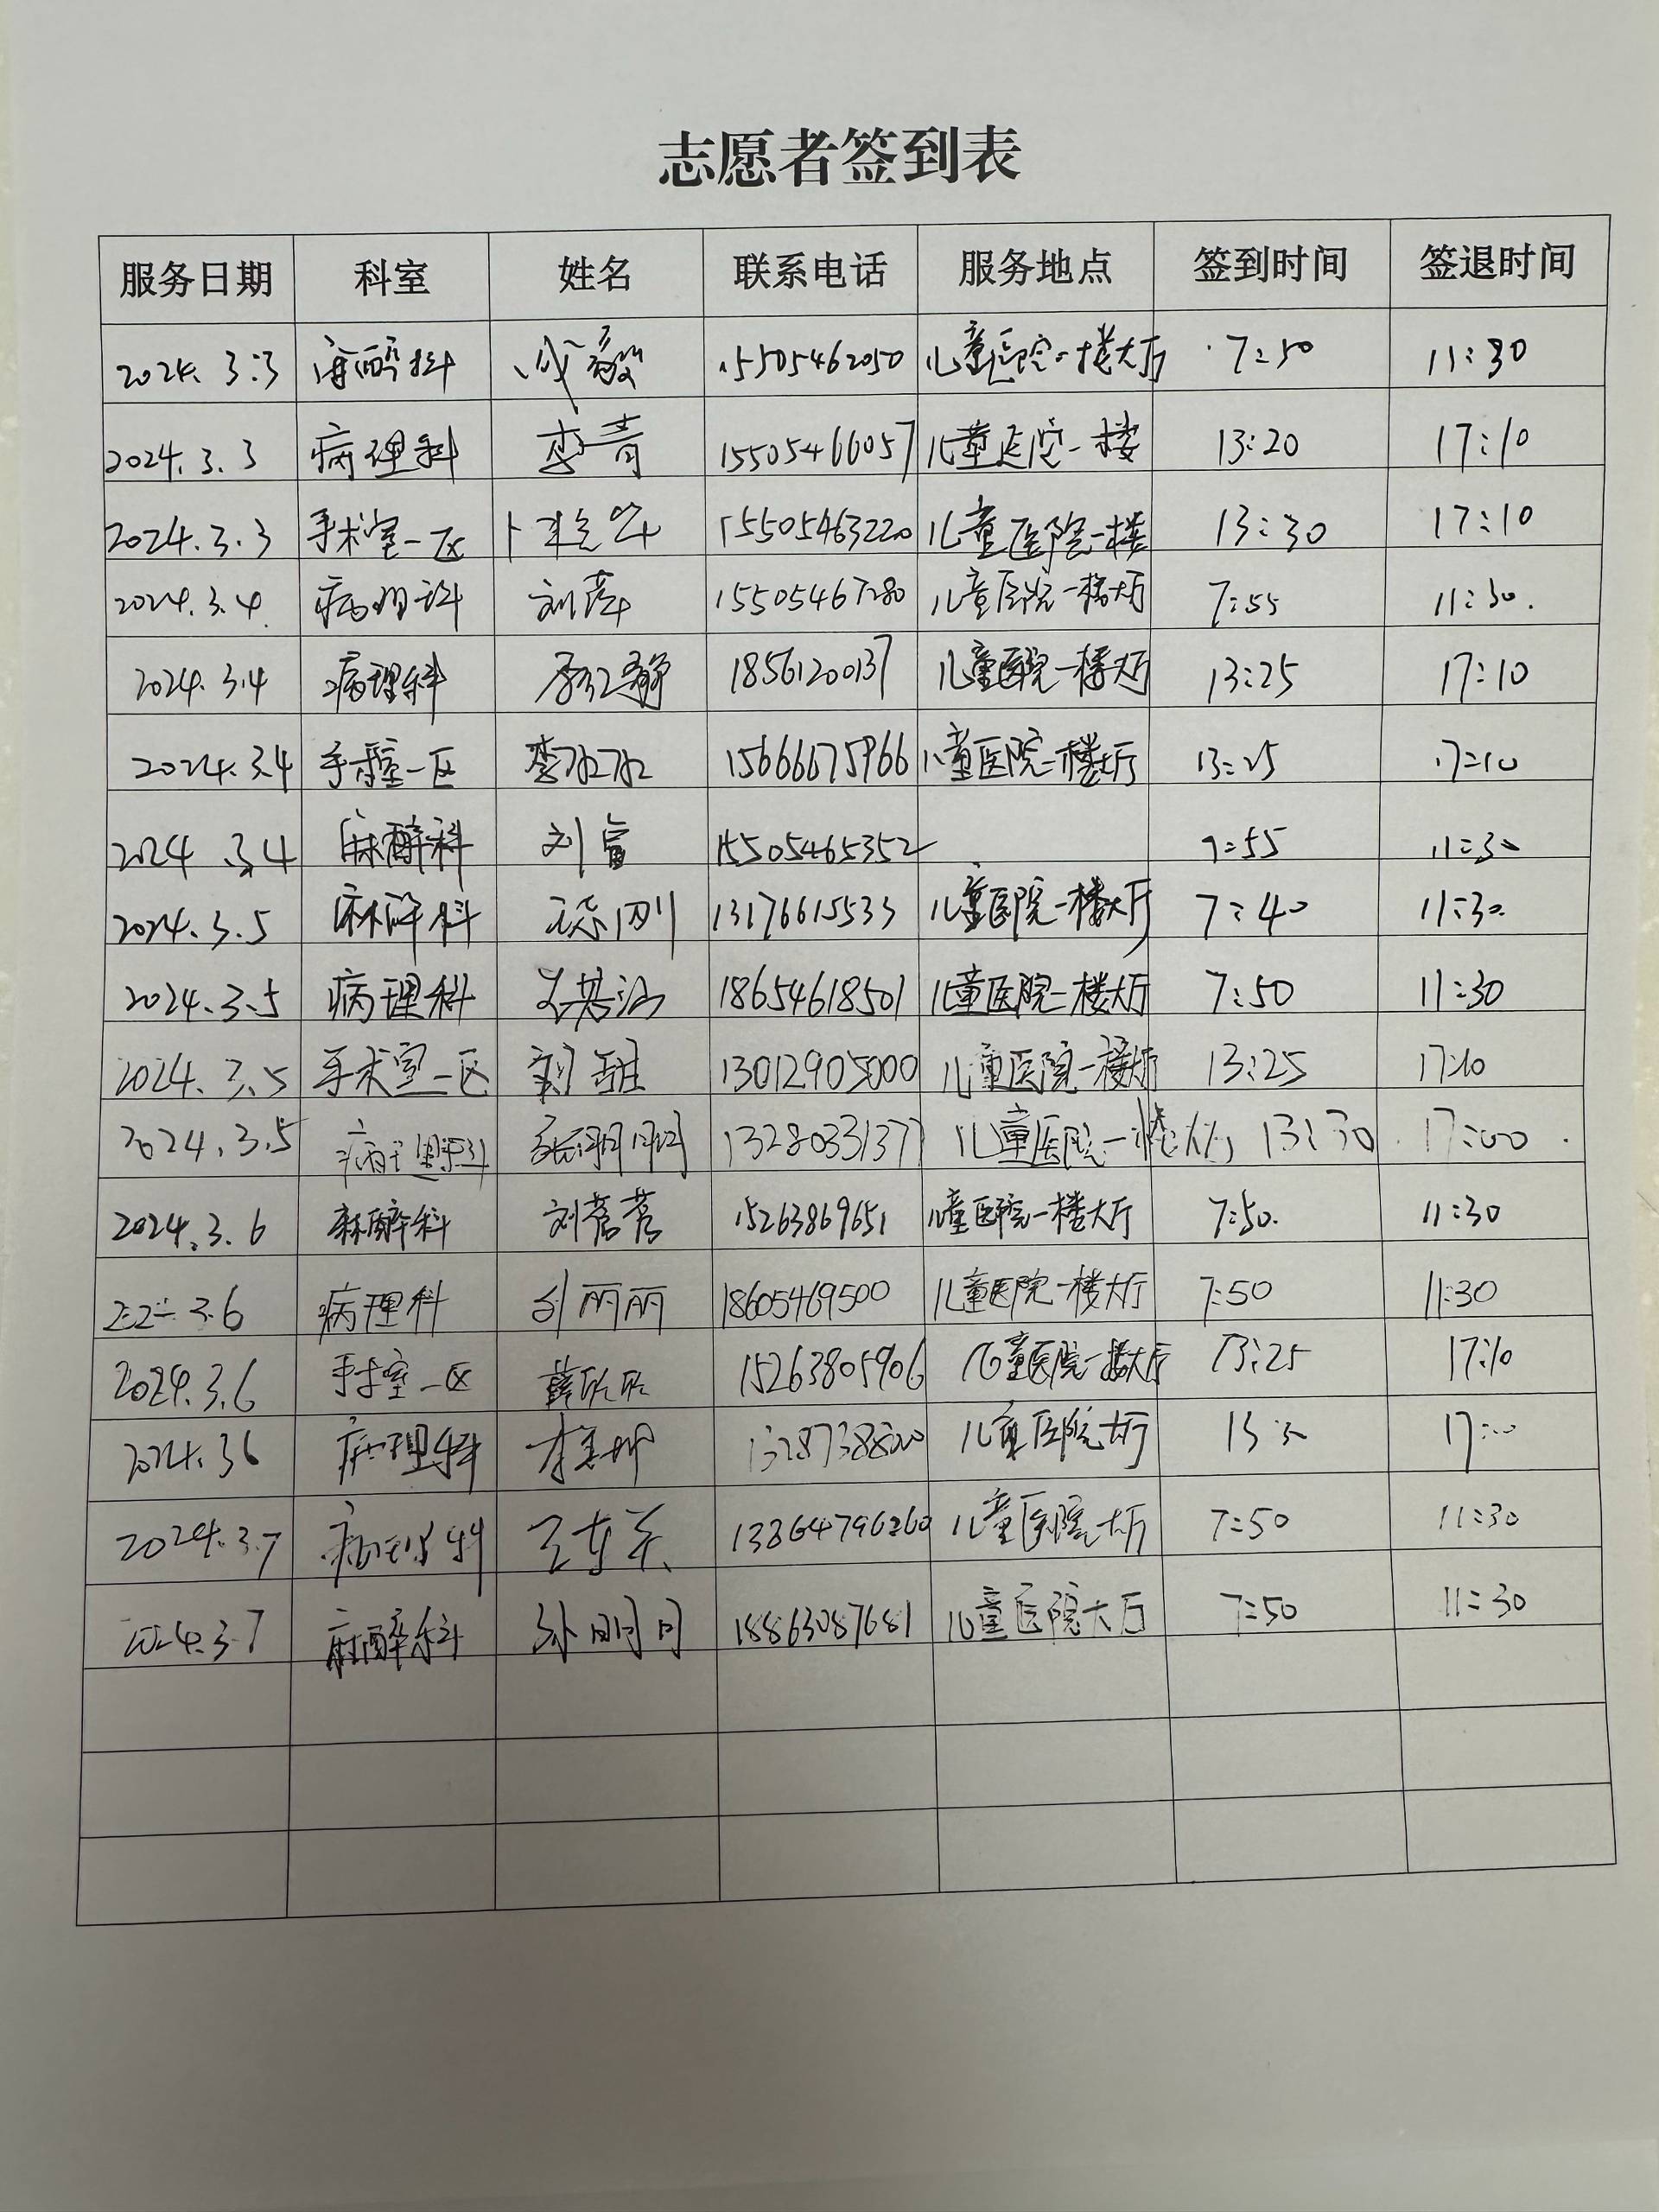 志愿者签到表
服务日期 科室 姓名 联系电话 服务地点 签到时间 签退时间
2024.3.3 麻醉科 成毅 15505462050 儿童医院一楼大厅 7:50 11:30
2024.3.3 病理科 李青 15505466057 儿童医院一楼 13:20 17:10
2024.3.3 手术室一区 15505463220 儿童医院一楼 13:30 17:10
2024.3.4 病理科 刘萍 15505467280 儿童医院一楼大厅 7:55 11:30.
2024.3.4 病理科 18561200137 儿童医院一楼大厅 13:25 17:10
2024.3.4 手术室一区 15666675966 儿童医院一楼大厅 13:25 17:10
2024.3.4 麻醉科 刘富 15505465352 7:55 11:30
2024.3.5 麻醉科 13176615533 儿童医院一楼大厅 7:40 11:30.
2024.3.5 病理科 18654618501 儿童医院一楼大厅 7:50 11:30
2024.3.5 手术室一区 13012905000 儿童医院一楼大厅 13:25 17:10
2024.3.5 病理科 13280331377 儿童医院一楼大厅 13:30 17:00
2024.3.6 麻醉科 刘茗茗 15263869651 儿童医院一楼大厅 7:50. 11:30
3.6 病理科 刘丽丽 18605469500 儿童医院一楼大厅 7:50 11:30
2024.3.6 手术室一区 薛欣欣 15263805906 儿童医院一楼大厅 13:25 17:10
2024.3.6 病理科 儿童医院大厅
2024.3.7 病理科 13364796260 儿童医院大厅 7:50 11:30
2024.3.7 麻醉科 孙明月 18863087681 儿童医院大厅 7:50 11:30